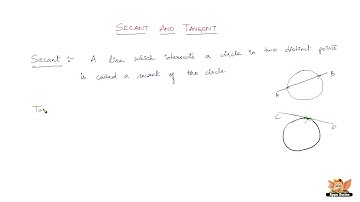 SECANT AND TANGENT
Secant :- A line which intersects a circle in two distinct points
is called a secant of the circle
A
B
Ta
C
D